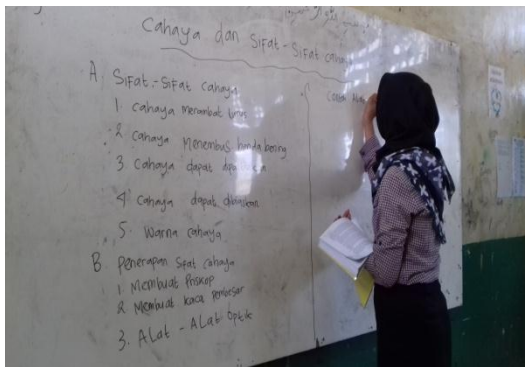 Cahaya dan Sifat-Sifat cahaya
A. Sifat-Sifat Cahaya
1. Cahaya Merambat lurus
2. Cahaya Menembus benda bening
3. Cahaya dapat
4. Cahaya dapat dibiaskan
5. Warna cahaya
B. Penerapan Sifat Cahaya
1. Membuat Priskop
2. Membuat kaca Pembesar
3. ALat - ALat Optik
Contoh Alat